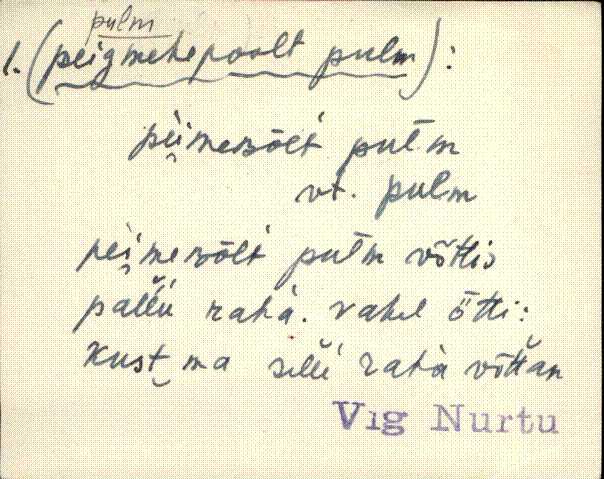 pulm
1. (peigmehepoolt pulm):
pei̯mezõlt pulm
vt. pulm
pei̯mezõlt pulm võttis
pallu raha. vahel ötti:
Kust ma selle raha võttan
Vig Nurtu